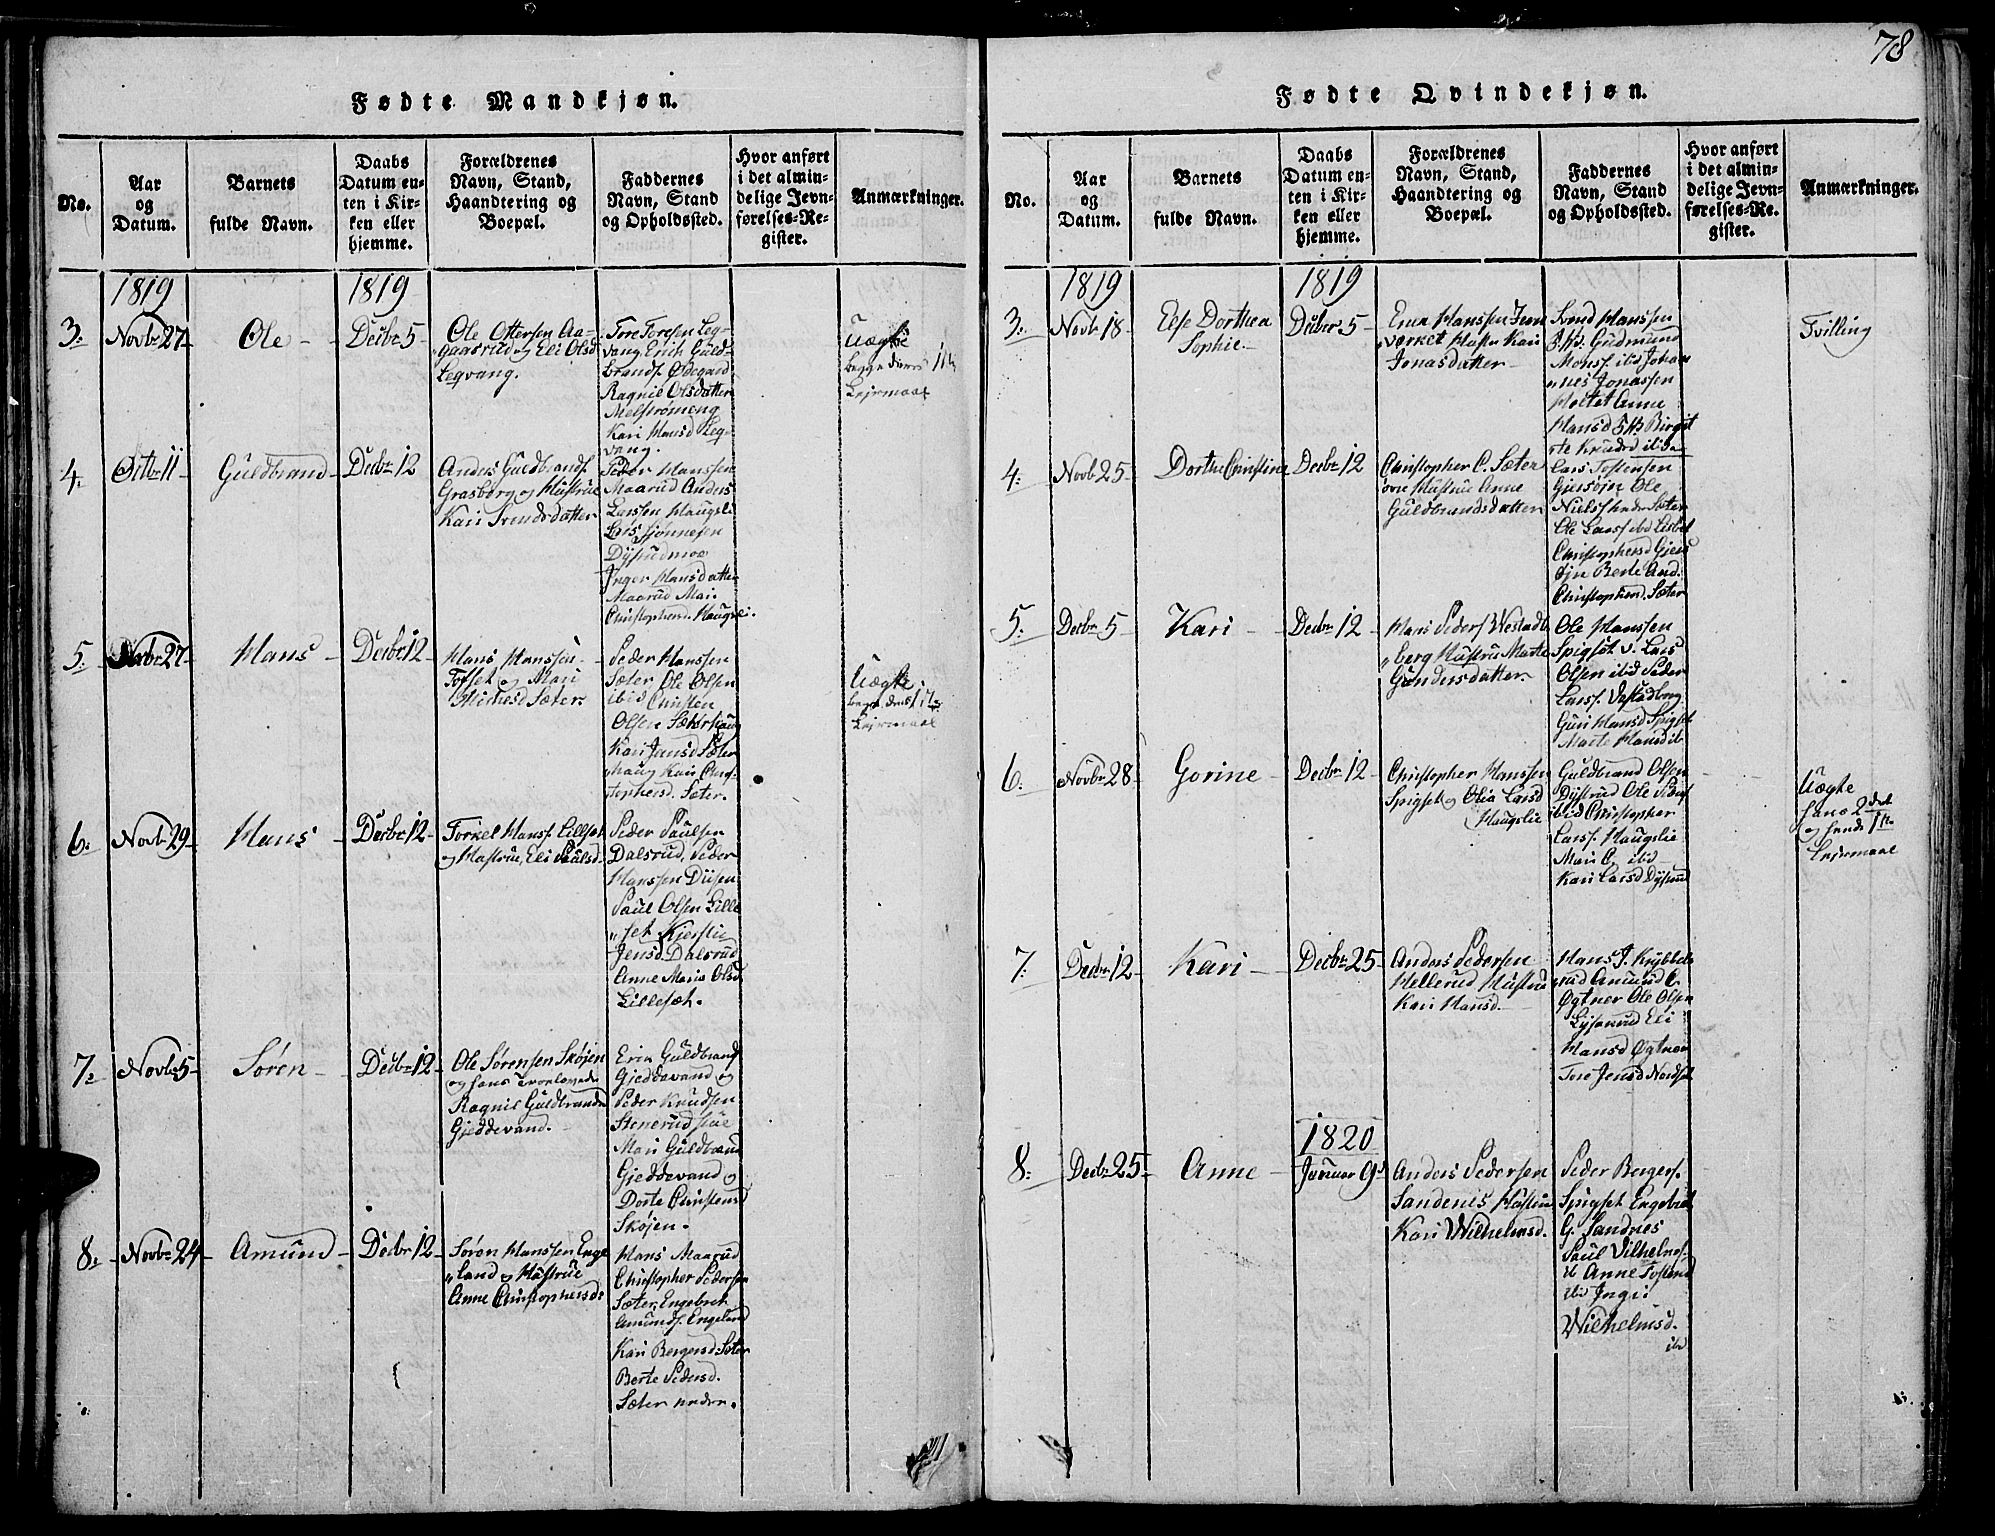 78
Fødte Mandkjøn.
No.
Aar
og
Datum.
Barnets
fulde Navn.
Daabs
Datum en-
ten i Kir-
ken eller
hjemme.
Forældrenes
Navn, Stand,
Haandtering og
Boepæl.
Faddernes
Navn, Stand
og Opholdssted.
Hvor anført
i det almin-
delige Jevn-
førelses-Re-
gister.
Anmærkninger.
1819
1819
3.
Novbr 27
Ole
Decbr 5
Ole Ottersen Aa-
gaarud og Eli Olsd
Legvang.
Tore Toresen Leg-
vang Erich Guld-
brands. Ødegaard
Ragnil Olsdatter
Melstrømeng
Kari Hansd Leg-
vang.
Uægte
begge deres 1ste
Leiermaal
4.
Octbr 11
Guldbrand
Decbr 12
Anders Guldbrands.
Grasberg og Hustrue
Kari Svendsdatter
Peder Hanssen
Maarud Anders
Larssen Haugsli
Lars
Dysrudmoe
Inger Hansdatter
Maarud Mari
Christophersd. Haugsli.
5.
Novbr 27
Hans
Decbr 12
Hans Hanssen
Tofset og Mari
Sæter.
Peder Hanssen
Sæter Ole Olsen
ibid Christen
Olsen Sæterhaug
Kari Jensd Sæter
haug Kari Chris-
tophersd. Sæter.
Uægte.
begge deres 1ste
Leiermaal
6.
Novbr 29
Hans
Decbr 12
Torkel Hanss. Lillset
og Hustrue, Eli Paulsd.
Peder Paulsen
Dalsrud, Peder
Hanssen
Paul Olsen Lille
set Kjersti
Jensd. Dalsrud
Anne Maria Olsd
Lillesæt.
7.
Novbr 5
Søren
Decbr 12
Ole Sørensen Skøjen
og hans trorlovede
Ragnil Guldbrandsd
Gjeddevand.
Erich Guldbrands
Gjeddevand og
Peder Knudsen
Stenerud
Mari Guldbrandsd
Gjeddevand og
Dorte Christensd
Skøjen.
8.
Novbr 24
Amund
Decbr 12
Søren Hanssen Enge
land og Hustrue
Anne Christophersd.
Hans Maarud
Christopher Pedersen
Sæter, Engebret
Amunds. Engeland
Kari Bergersd. Sæter
Berte Pedersd.
Sæter nedre.
Fødte Qvindekjøn.
No.
Aar
og
Datum.
Barnets
fulde Navn.
Daabs
Datum en-
ten i Kir-
ken eller
hjemme.
Forældrenes
Navn, Stand,
Haandtering og
Boepæl.
Faddernes
Navn, Stand
og Opholdssted.
Hvor anført
i det almin-
delige Jevn-
førelses-Re-
gister.
Anmærkninger.
1819
1819
3.
Novbr 18
Else Dorthea
Sophie
Decber 5
Hanssen Jern
værket Hustr Kari
Jonasdatter
Svend Hanssen
Gudmund
Monss. ibid Johan
nes Jonassen
Moltet Anne
Hansd Birgit
te Knudsd ibid
Tvilling
4.
Novbr 25
Dorthe Christine
Decbr 12
Christopher C. Sæter
øvre Hustrue Anne
Guldbrandsdatter
Lars Tostensen
Gjersøjen Ole
Niels nedre Sæter
Ole Larss ibid Lisbet
Christophersd Giers
øjn Berte And.
Christophersd. Sæter
5.
Decbr 5
Kari
Decbr 12
Hans Peders Westad
berg Hustrue Marte
Gundersdatter.
Ole Hanssen
Spigset v. Lars
Olsen ibid Peder
Larss. Vestadberg
Guri Hansd Spigset
Marte Hansd ib
6.
Novbr 28
Gorine
Decbr 12
Christopher Hanssen
Spigset og Olia Larsd
Haugslie
Guldbrand Olsen
Dystrud Ole Peders
ibid Christopher
Larss. Haugslie
Mari C. ibd
Kari Larsd Dysrud
Uægte
hans 2det
og hende 1ste
Leiermaal
7.
Decbr 12
Kari
Decbr 25
Anders Pedersen
Hellerud Hustrue
Kari Hansd.
Hans J. Krybbels
rud Amund C.
Øgtner Ole Olsen
Lysarud Eli
Hansd Øgtner
Tore Jensd Nordset
1820
8.
Decbr 25
Anne
Januar 9
Anders Pedersen
Sandenes Hustrue
Kari Wilhelmsd.
Peder Bergers.
Spigset Engebret
G. Sandnes
Paul Vilhelms.
ib Anne Tostensd
ibid Inger
Wilhelmsd.
ibd